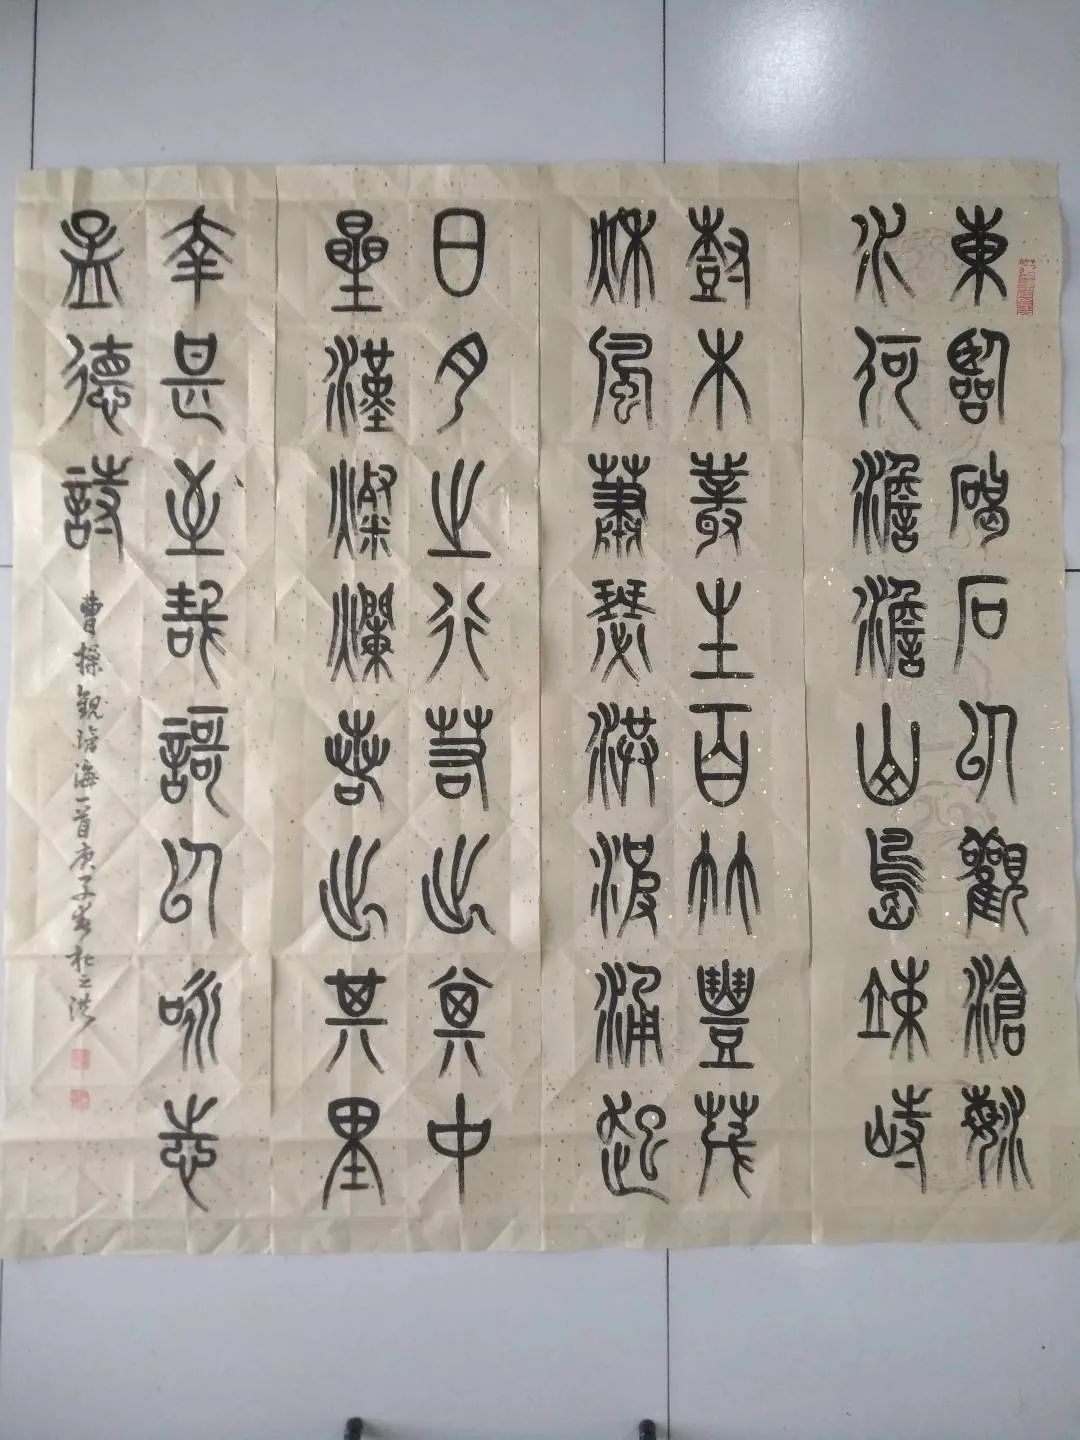 東臨碣石以觀滄海
水何澹澹山島竦峙
樹木叢生百竹豐茂
秋風蕭瑟洪波涌起
日月之行若出其中
星漢燦爛若出其里
幸甚至哉謌以咏志
孟德詩
曹操觀滄海一首庚子